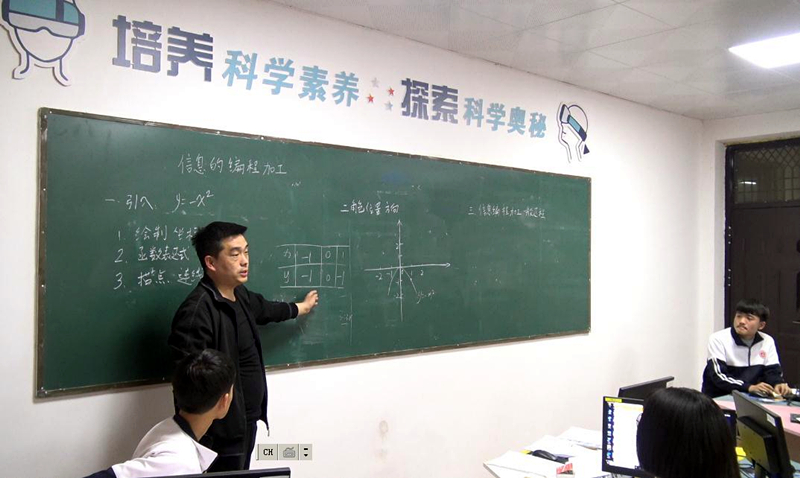 培养科学素养 探索科学奥秘
信息的编程加工
一. 引入: y=-x²
1. 绘制
2. 函数表达式
3. 描点 连线
x -1 0 1
y -1 0 -1
二 角色位置 方向
-2 -1 1 2
y=-x²
三. 信息编程加工
CH